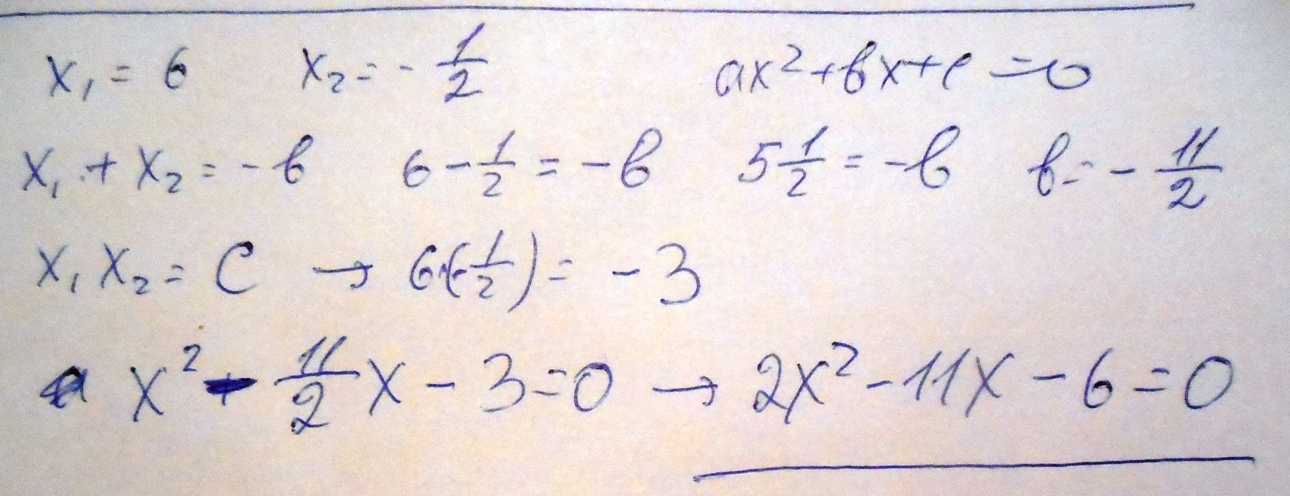 x₁ = 6 x₂ = -1/2 ax² + bx + c = 0
x₁ + x₂ = -b 6 - 1/2 = -b 5 1/2 = -b b = -11/2
x₁ x₂ = c → 6·(-1/2) = -3
x² - 11/2 x - 3 = 0 → 2x² - 11x - 6 = 0